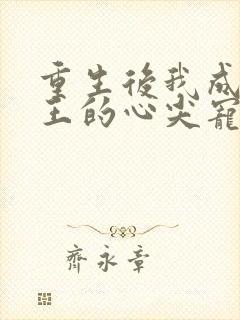 重生後我成
王的心尖寵
齊永章